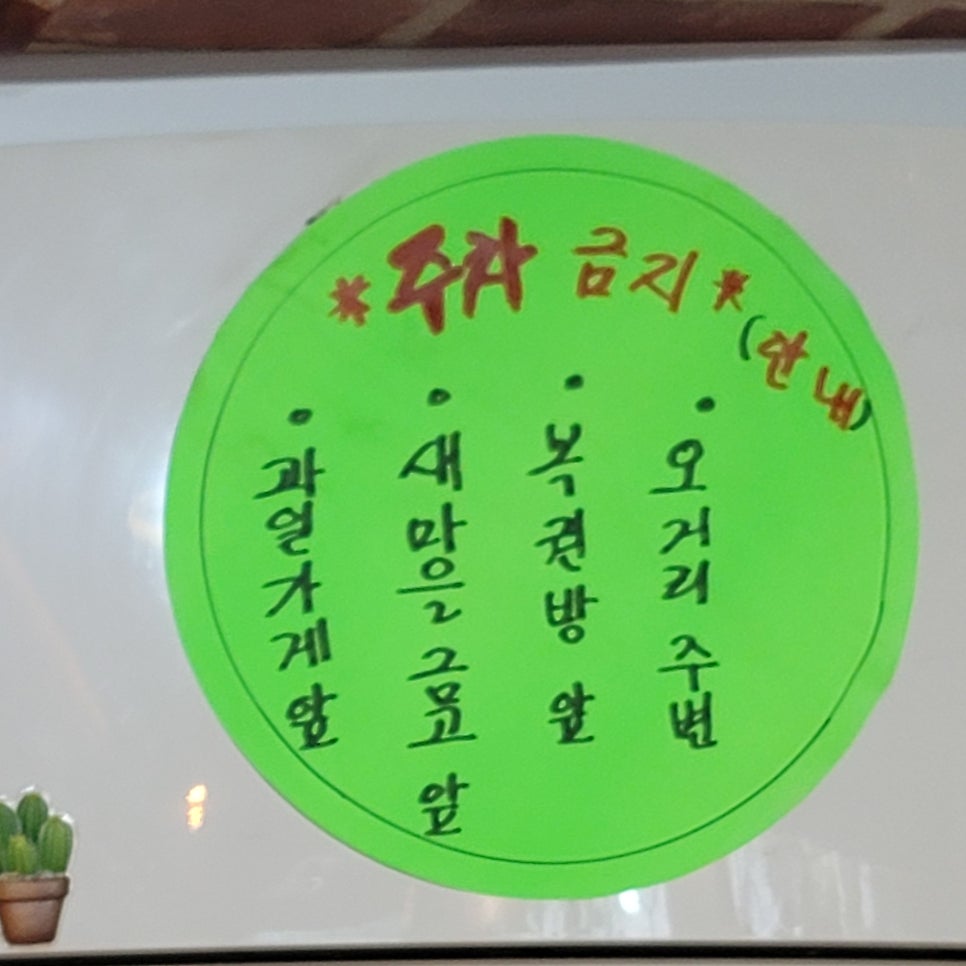 *주차 금지*
(안내)
• 과일가게앞
• 새마을금고 앞
• 복권방 앞
• 오거리 주변